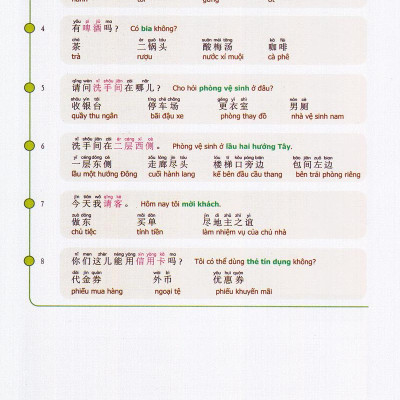 4
yǒu pí jiǔ ma
有啤酒吗？ Có bia không?
chá èr guō tóu suān méi tāng kā fēi
茶 二锅头 酸梅汤 咖啡
trà rượu nước xí muội cà phê
5
qǐng wèn xǐ shǒu jiān zài nǎr
请问洗手间在哪儿？ Cho hỏi phòng vệ sinh ở đâu?
shōu yín tái tíng chē chǎng gēng yī shì nán cè
收银台 停车场 更衣室 男厕
quầy thu ngân bãi đậu xe phòng thay đồ nhà vệ sinh nam
6
xǐ shǒu jiān zài èr céng xī cè
洗手间在二层西侧。 Phòng vệ sinh ở lầu hai hướng Tây.
yī céng dōng cè zǒu láng jìn tóu lóu tī kǒu páng biān bāo jiān zuǒ bian
一层东侧 走廊尽头 楼梯口旁边 包间左边
lầu một hướng Đông cuối hành lang kế bên đầu cầu thang bên trái phòng riêng
7
jīn tiān wǒ qǐng kè
今天我请客。 Hôm nay tôi mời khách.
zuò dōng mǎi dān jìn dì zhǔ zhī yì
做东 买单 尽地主之谊
chủ tiệc tính tiền làm nhiệm vụ của chủ nhà
8
nǐ men zhèr néng yòng xìn yòng kǎ ma
你们这儿能用信用卡吗？ Tôi có thể dùng thẻ tín dụng không?
dài jīn quàn wài bì yōu huì quàn
代金券 外币 优惠券
phiếu mua hàng ngoại tệ phiếu khuyến mãi